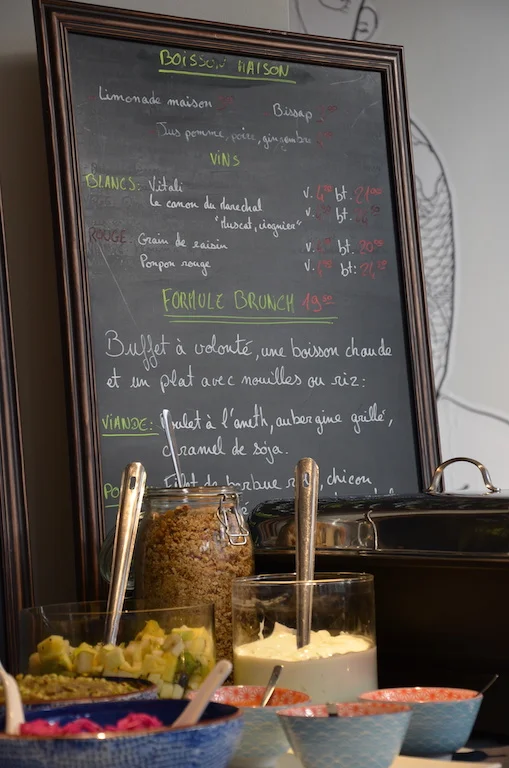 BOISSON MAISON
Limonade maison
Bissap
Jus pomme, poire, gingembre
VINS
BLANCS: Vitali v. bt. 21,00
Le canon du marechal v. bt.
"Muscat, viognier"
ROUGE Grain de raisin v. bt. 20,00
Ponpon rouge v. bt:
FORMULE BRUNCH 19,00
Buffet à volonté, une boisson chaude
et un plat avec nouilles ou riz:
VIANDE: Poulet à l'aneth, aubergine grillé,
caramel de soja.
Filet de barbue, chicon